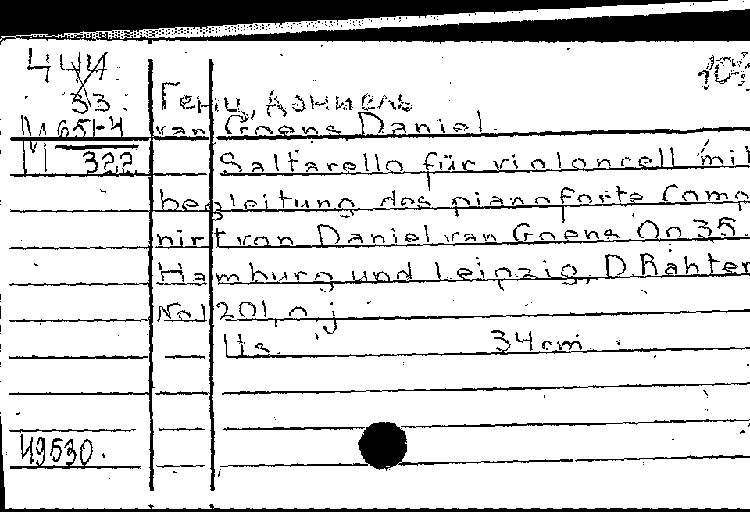 444
33
Генц, Даниель
М 651-4 van Goens, Daniel.
М 322 Saltarello für violoncell mit
begleitung des pianoforte Comp
nirt von Daniel van Goens Op 35.
Hamburg und Leipzig, D. Rahter
No 1201, o, j
11s. 34cm.
49530.